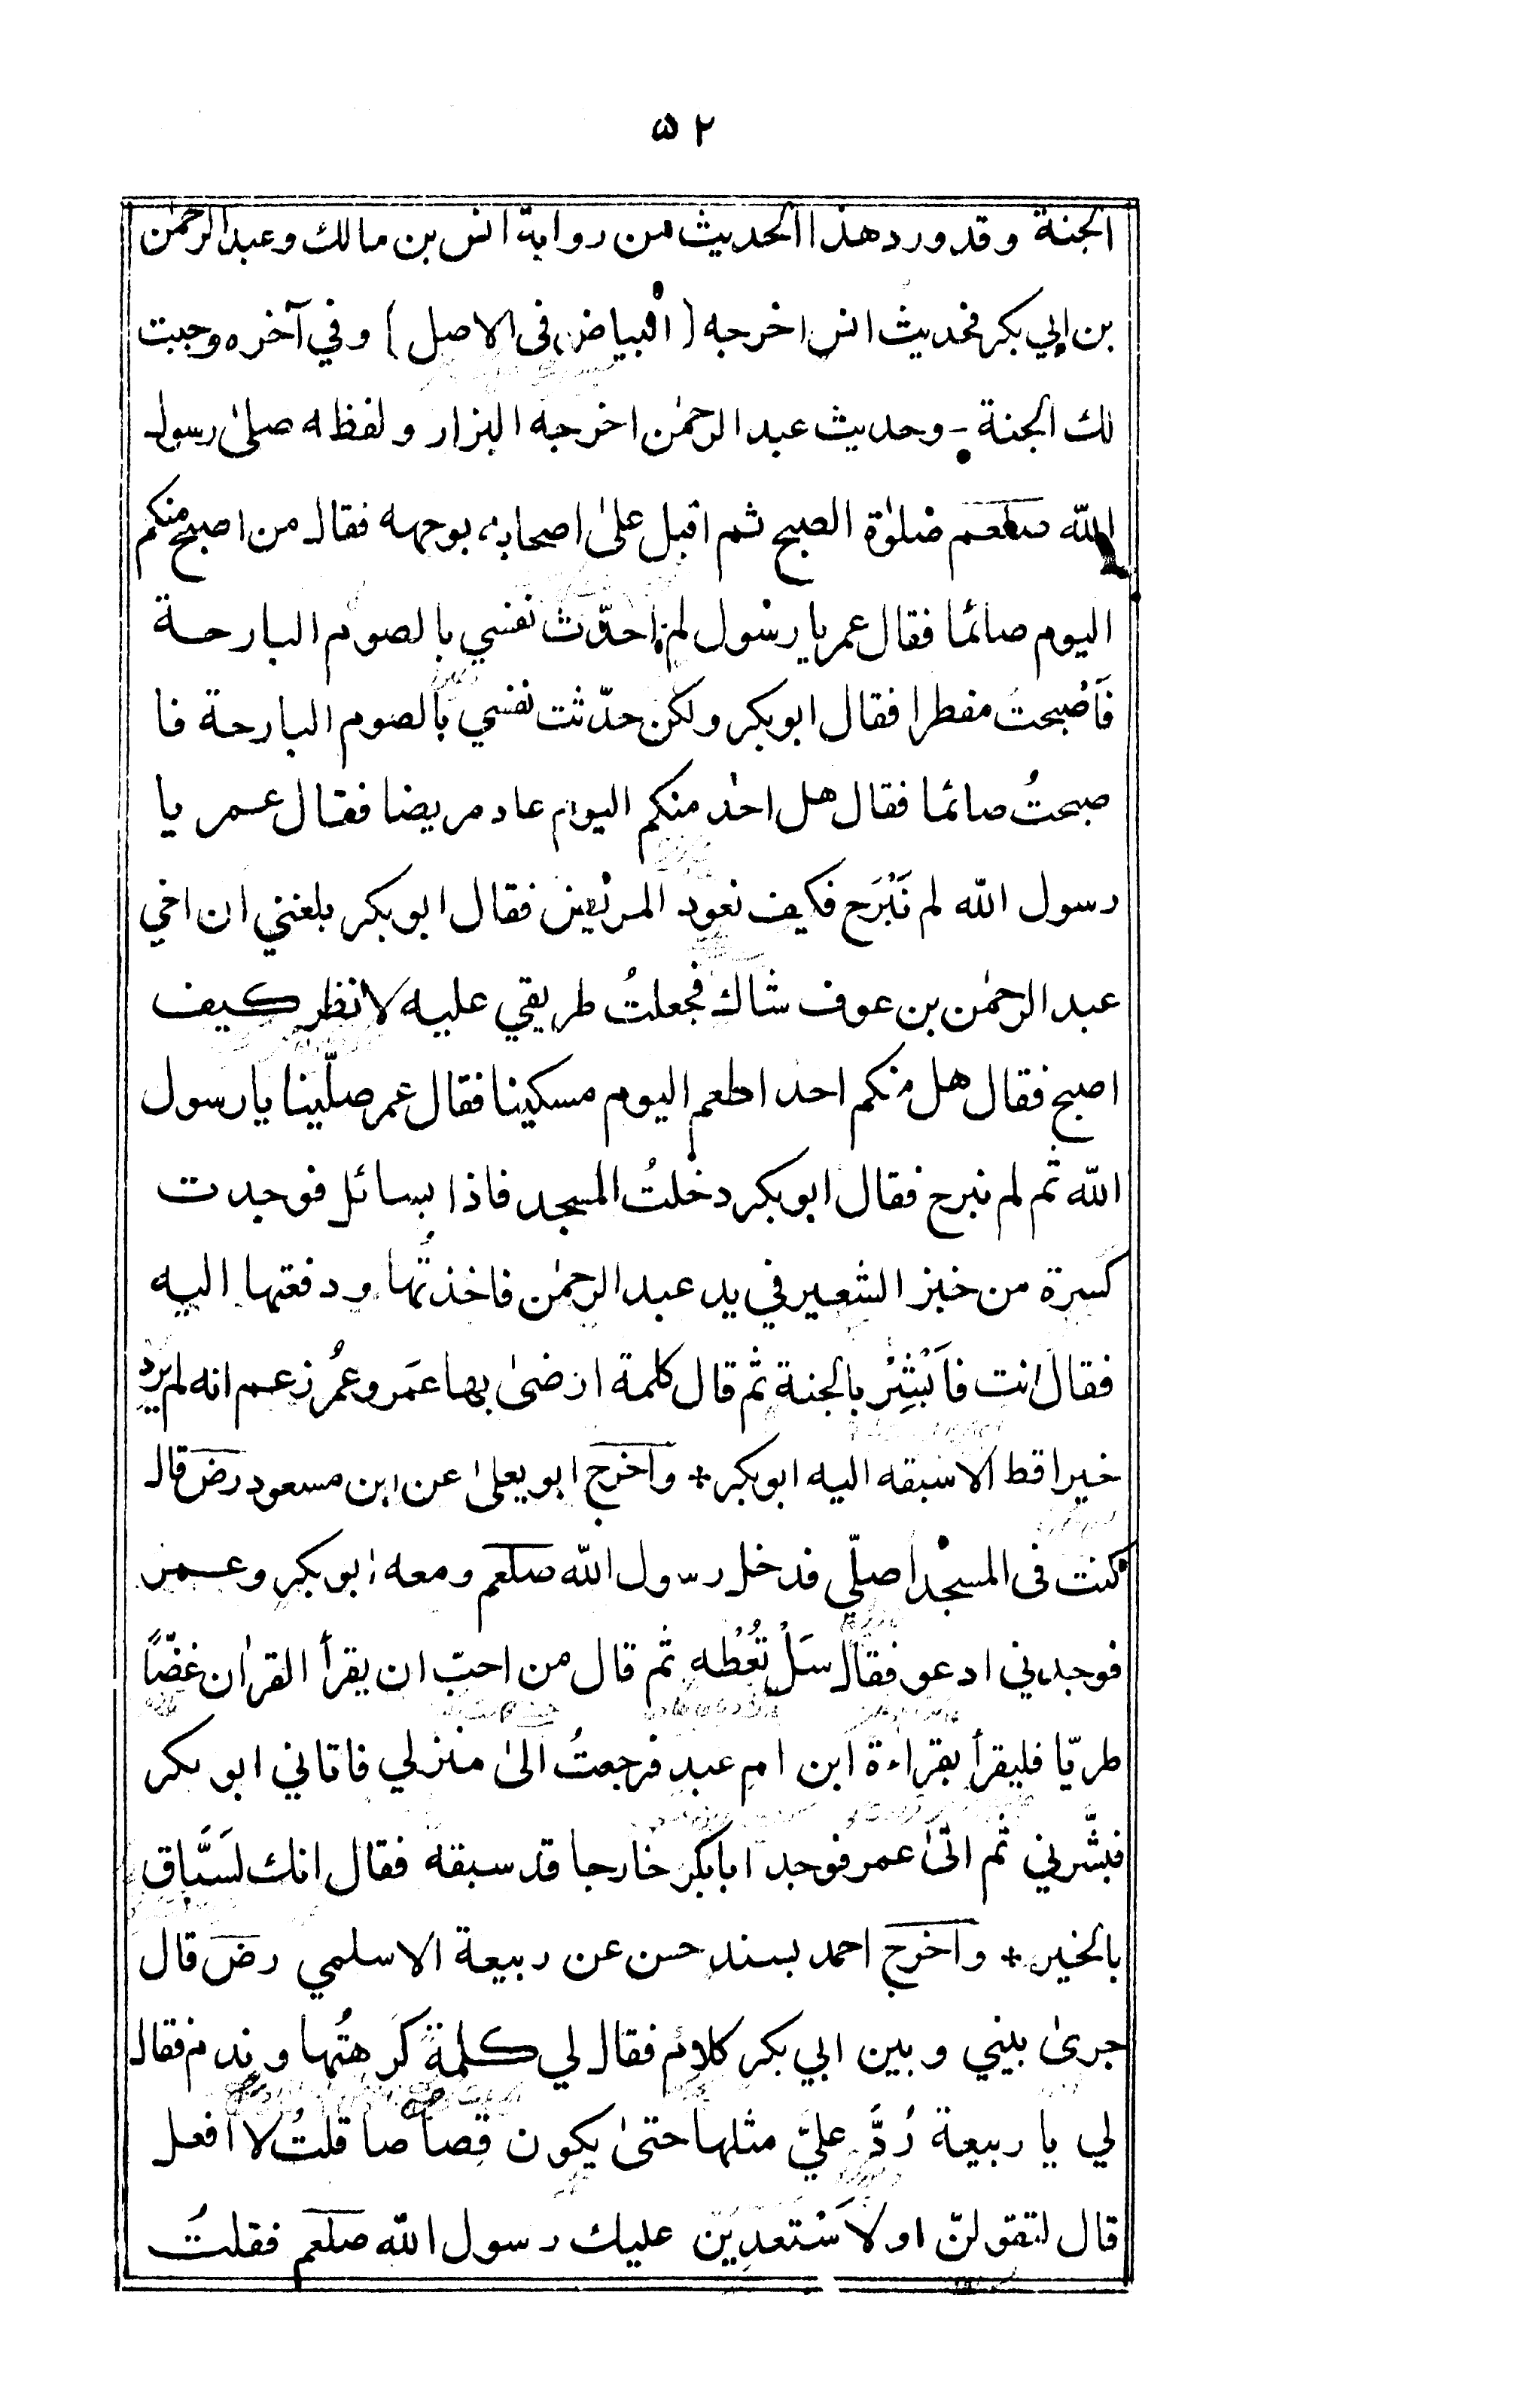 ٥٢
الجنة وقد ورد هذا الحديث من رواية انس بن مالك وعبد الرحمٰن
بن ابي بكر فحديث انس اخرجه (البياض فى الاصل) وفي آخره وجبت
لك الجنة - وحديث عبد الرحمٰن اخرجه البزار ولفظه صلىٰ رسول
الله صلعم صلوٰة الصبح ثم اقبل علىٰ اصحابه بوجهه فقال من اصبح منكم
اليوم صائما فقال عمر يا رسول لم احدّث نفسي بالصوم البارحة
فَاَصْبحت مفطرا فقال ابوبكر ولكن حدّثت نفسي بالصوم البارحة فا
صبحتُ صائما فقال هل احد منكم اليوم عاد مريضا فقال عمر يا
رسول الله لم نَبْرَح فكيف نعود المريض فقال ابوبكر بلغني ان اخي
عبد الرحمٰن بن عوف شاك فجعلتُ طريقي عليه لانظر كيف
اصبح فقال هل منكم احد اطعم اليوم مسكينا فقال عمر صلّينا يا رسول
الله ثم لم نبرح فقال ابوبكر دخلتُ المسجد فاذا بسائل فوجدت
كسرة من خبز الشعير في يد عبد الرحمٰن فاخذتُها ودفعتها اليه
فقال انت فاَبْشِرْ بالجنة ثم قال كلمة ارضىٰ بها عمَر وعمُر زعم انه لم يرد
خيرا قط الا سبقه اليه ابوبكر * واخرج ابو يعلىٰ عن ابن مسعود رض قال
كنت فى المسجد اصلّي فدخل رسول الله صلعم ومعه ابوبكر وعمر
فوجدني ادعو فقال سَلْ تُعْطه ثم قال من احبّ ان يقرأ القراٰن غضّاً
طريّا فليقرأ بقراءة ابن ام عبد فرجعتُ الىٰ منزلي فاتاني ابوبكر
فبشّرني ثم اتىٰ عمر فوجد ابابكر خارجا قد سبقه فقال انك لَسَبَّاق
بالخير * واخرج احمد بسند حسن عن ربيعة الاسلمي رض قال
جرىٰ بيني وبين ابي بكر كلام فقال لي كلمة كَرهتُها وندم فقال
لي يا ربيعة رُدَّ عليّ مثلها حتىٰ يكون قصاصا قلتُ لا افعل
قال لتقولنّ او لاَسْتعدِيَن عليك رسول الله صلعم فقلتُ